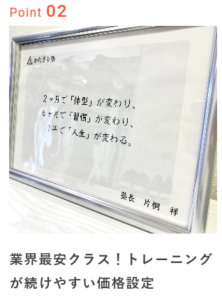 Point 02
2ヶ月で「体型」が変わり、
6ヶ月で「習慣」が変わり、
1年で「人生」が変わる。
片桐 祥
業界最安クラス！トレーニング
が続けやすい価格設定